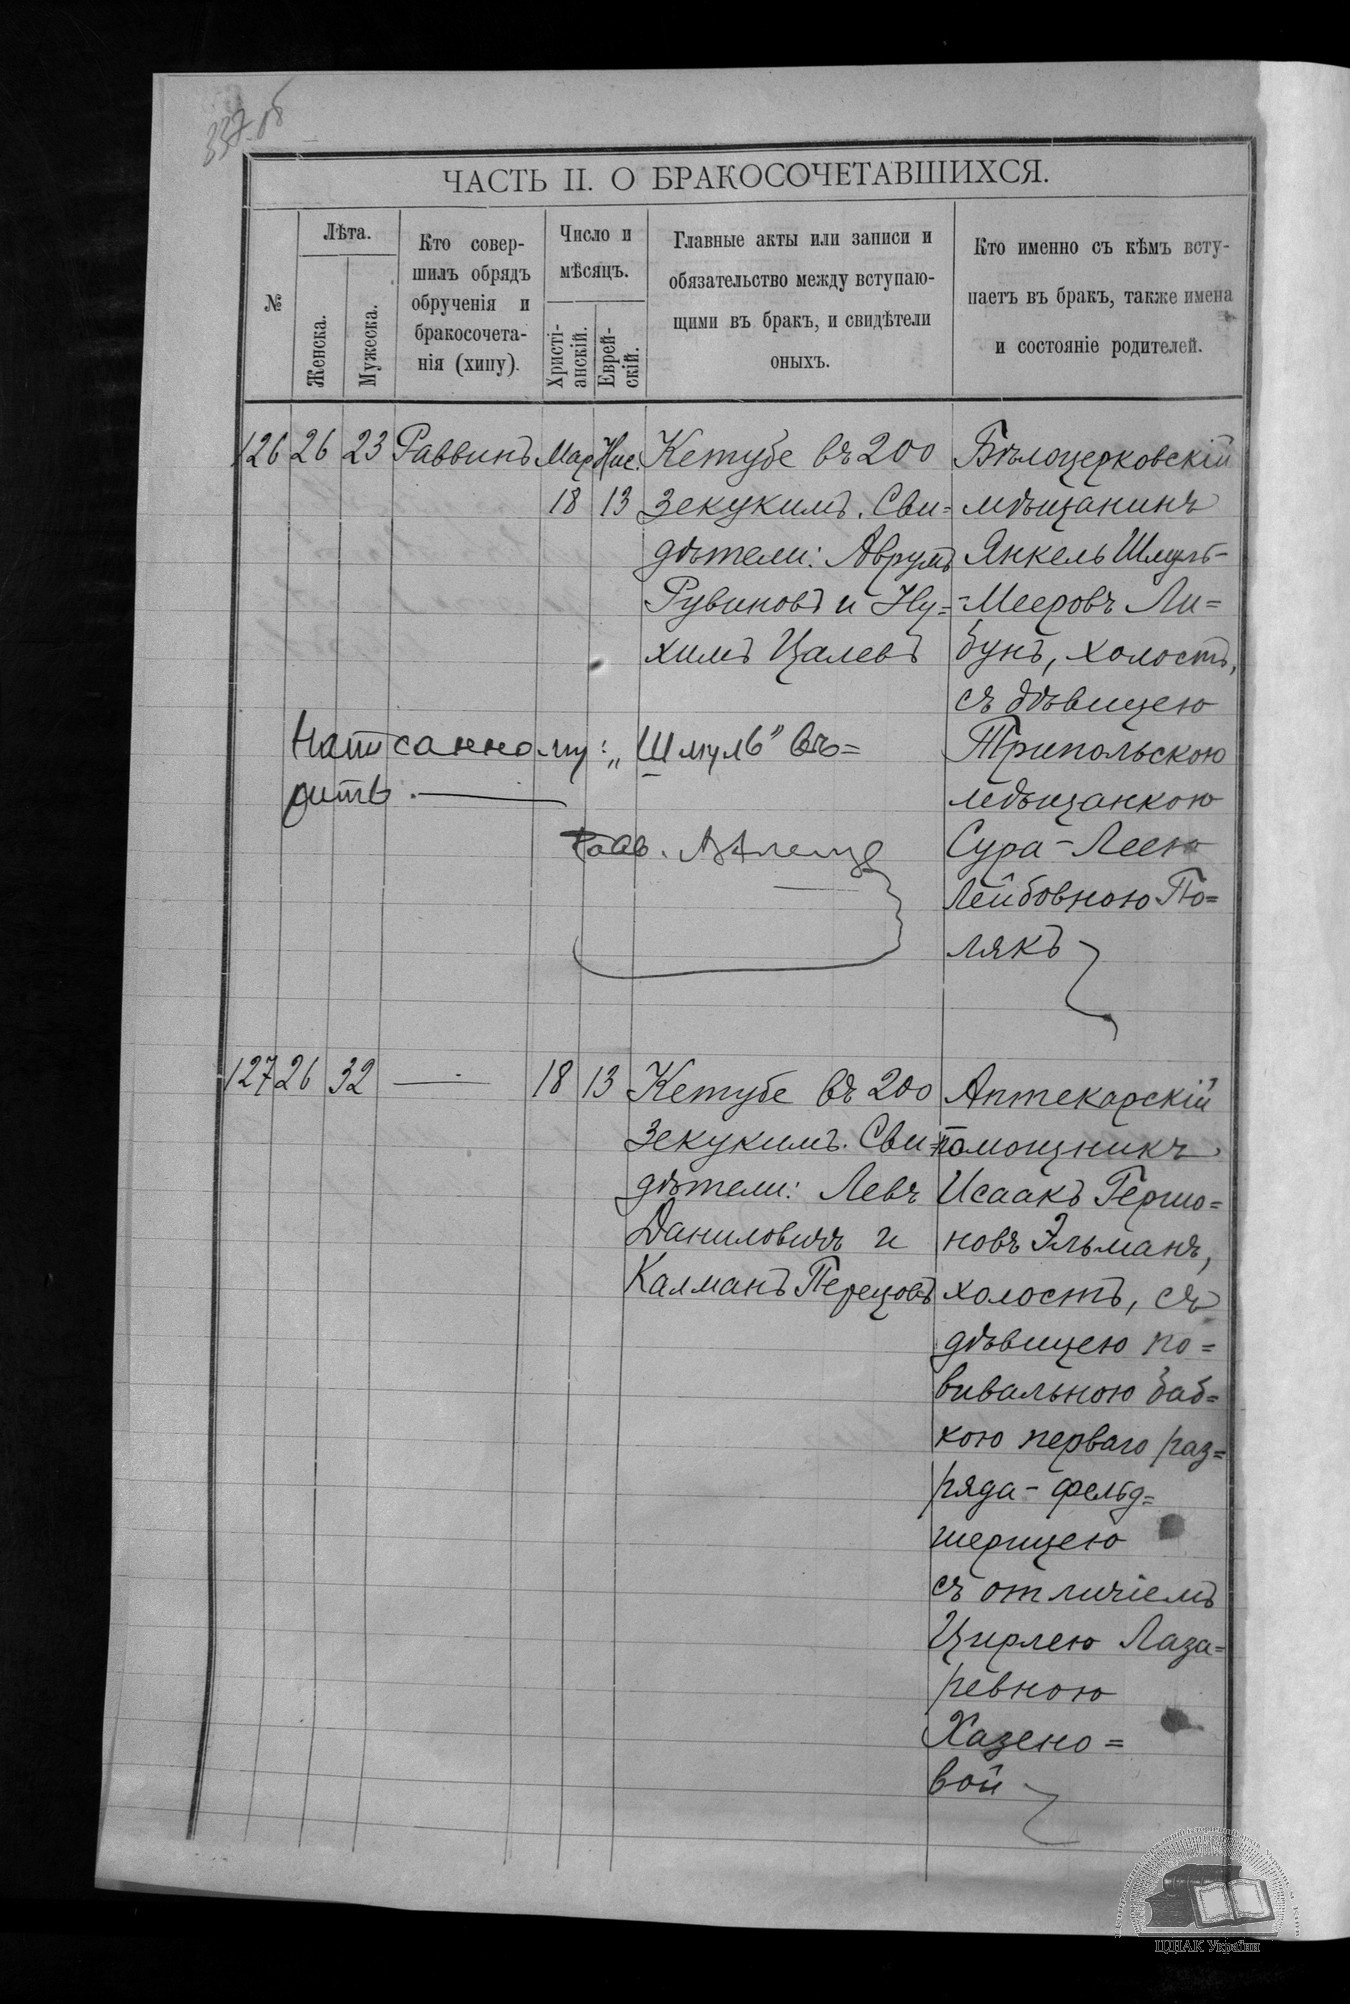 337 об
ЧАСТЬ II. О БРАКОСОЧЕТАВШИХСЯ.
№
Лѣта.
Женска.
Мужеска.
Кто совер-
шилъ обрядъ
обрученія и
бракосочета-
нія (хипу).
Число и
мѣсяцъ.
Христі-
анскій.
Еврей-
скій.
Главные акты или записи и
обязательство между вступаю-
щими въ бракъ, и свидѣтели
оныхъ.
Кто именно съ кѣмъ всту-
паетъ въ бракъ, также имена
и состояніе родителей.
126 26 23 Раввинъ Мар Нис.
18 13
Кетубе въ 200
Зекукимъ. Сви=
дѣтели: Аврумъ
Рувиновъ и Ну=
химъ Цалевъ
Бѣлоцерковскій
мѣщанинъ
Янкель Шмуль-
-Мееровъ Ли=
бунъ, холостъ,
съ дѣвицею
Трипольскою
мѣщанкою
Сура-Леею
Лейбовною По=
лякъ
Написанному: „Шмуль" вѣ=
рить.
Равв.
127 26 32 — 18 13
Кетубе въ 200
Зекукимъ. Сви=
дѣтели: Левъ
Даниловичъ и
Калманъ Перецовъ
Аптекарскій
помощникъ
Исаакъ Гершо=
новъ Эльманъ,
холостъ, съ
дѣвицею по=
вивальною баб=
кою перваго раз=
ряда-фельд=
шерицею
съ отличіемъ
Цирлею Лаза=
ревною
Хазено=
вой
ЦДІАК України